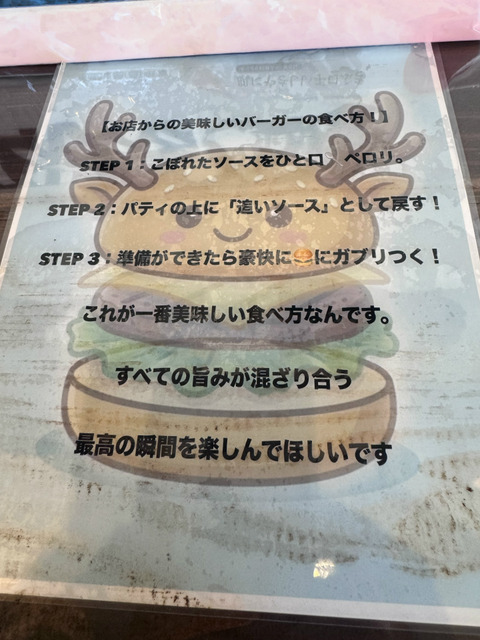 【お店からの美味しいバーガーの食べ方！】
STEP 1：こぼれたソースをひと口　ペロリ。
STEP 2：パティの上に「追いソース」として戻す！
STEP 3：準備ができたら豪快に🍔にガブリつく！
これが一番美味しい食べ方なんです。
すべての旨みが混ざり合う
最高の瞬間を楽しんでほしいです